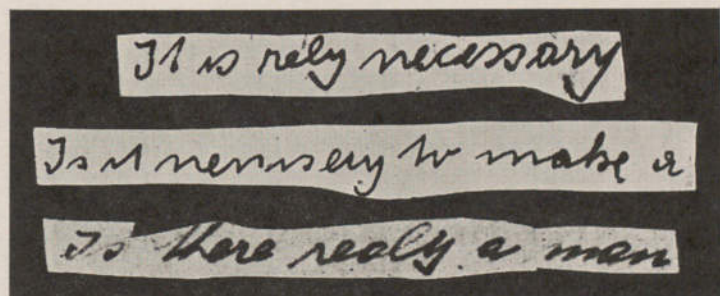 It is rely necessary
Is it nennisery to make a
Is there realy a man